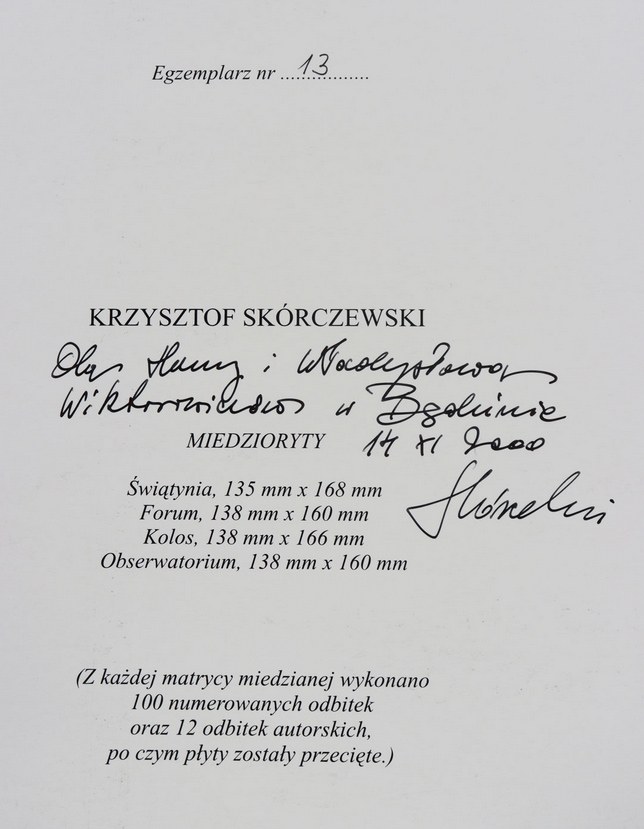 Egzemplarz nr ....13............
KRZYSZTOF SKÓRCZEWSKI
Dla Hanny i Władysława
Wiktorowiczów w Będzinie
MIEDZIORYTY 14 XI 2000
Świątynia, 135 mm x 168 mm
Forum, 138 mm x 160 mm
Kolos, 138 mm x 166 mm
Obserwatorium, 138 mm x 160 mm
(Z każdej matrycy miedzianej wykonano
100 numerowanych odbitek
oraz 12 odbitek autorskich,
po czym płyty zostały przecięte.)